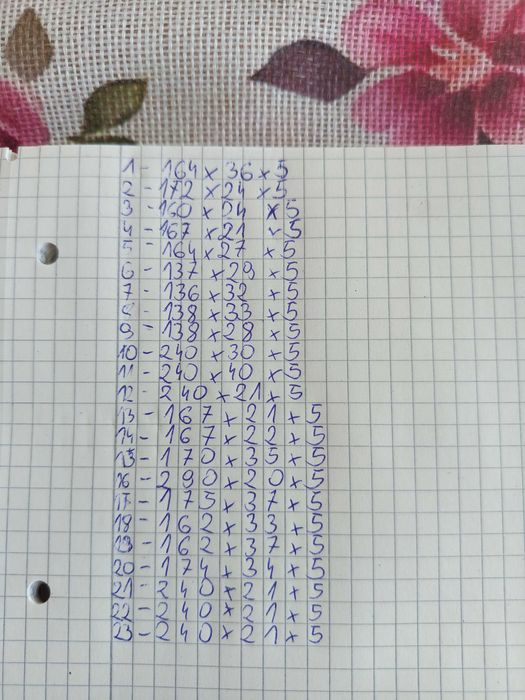 1 - 164 x 36 x 5
2 - 172 x 24 x 5
3 - 160 x 24 x 5
4 - 167 x 21 x 5
5 - 164 x 27 x 5
6 - 137 x 29 x 5
7 - 136 x 32 x 5
8 - 138 x 33 x 5
9 - 138 x 28 x 5
10 - 240 x 30 x 5
11 - 240 x 40 x 5
12 - 240 x 21 x 5
13 - 167 x 21 x 5
14 - 167 x 22 x 5
15 - 170 x 35 x 5
16 - 290 x 20 x 5
17 - 175 x 37 x 5
18 - 162 x 33 x 5
19 - 162 x 37 x 5
20 - 174 x 34 x 5
21 - 240 x 21 x 5
22 - 240 x 21 x 5
23 - 240 x 21 x 5